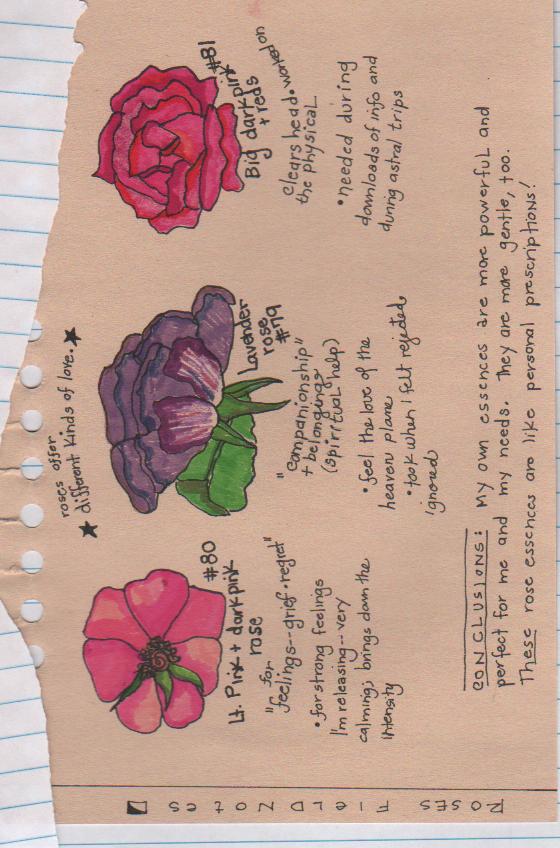 ROSES FIELD NOTES
roses offer
different kinds of love.
#80
Lt. Pink + dark pink
rose
for
"feelings--grief•regret"
• for strong feelings
I'm releasing--very
calming; brings down the
intensity
Lavender
rose
#79
"companionship"
+ belongings
(spiritual help)
• feel the love of the
heaven plane
• took when I felt rejected
ignored
#81
Big dark pink
+ reds
clears head • worked on
the physical
• needed during
downloads of info and
during astral trips
CONCLUSIONS: My own essences are more powerful and
perfect for me and my needs. They are more gentle, too.
These rose essences are like personal prescriptions!